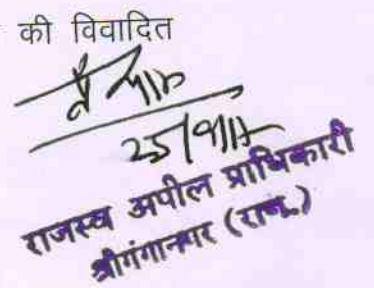 की विवादित
25/9/17
राजस्व अपील प्राधिकारी
श्रीगंगानगर (राज.)